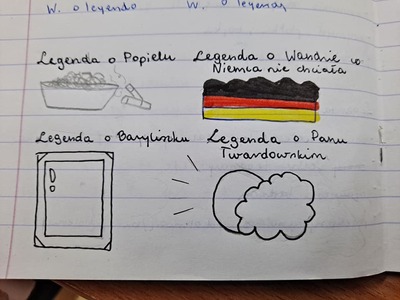 W. o leyendo W. o leyendas
Legenda o Popielu
Legenda o Wandzie co
Niemca nie chciała
Legenda o Bazyliszku
Legenda o Panu
Twardowskim